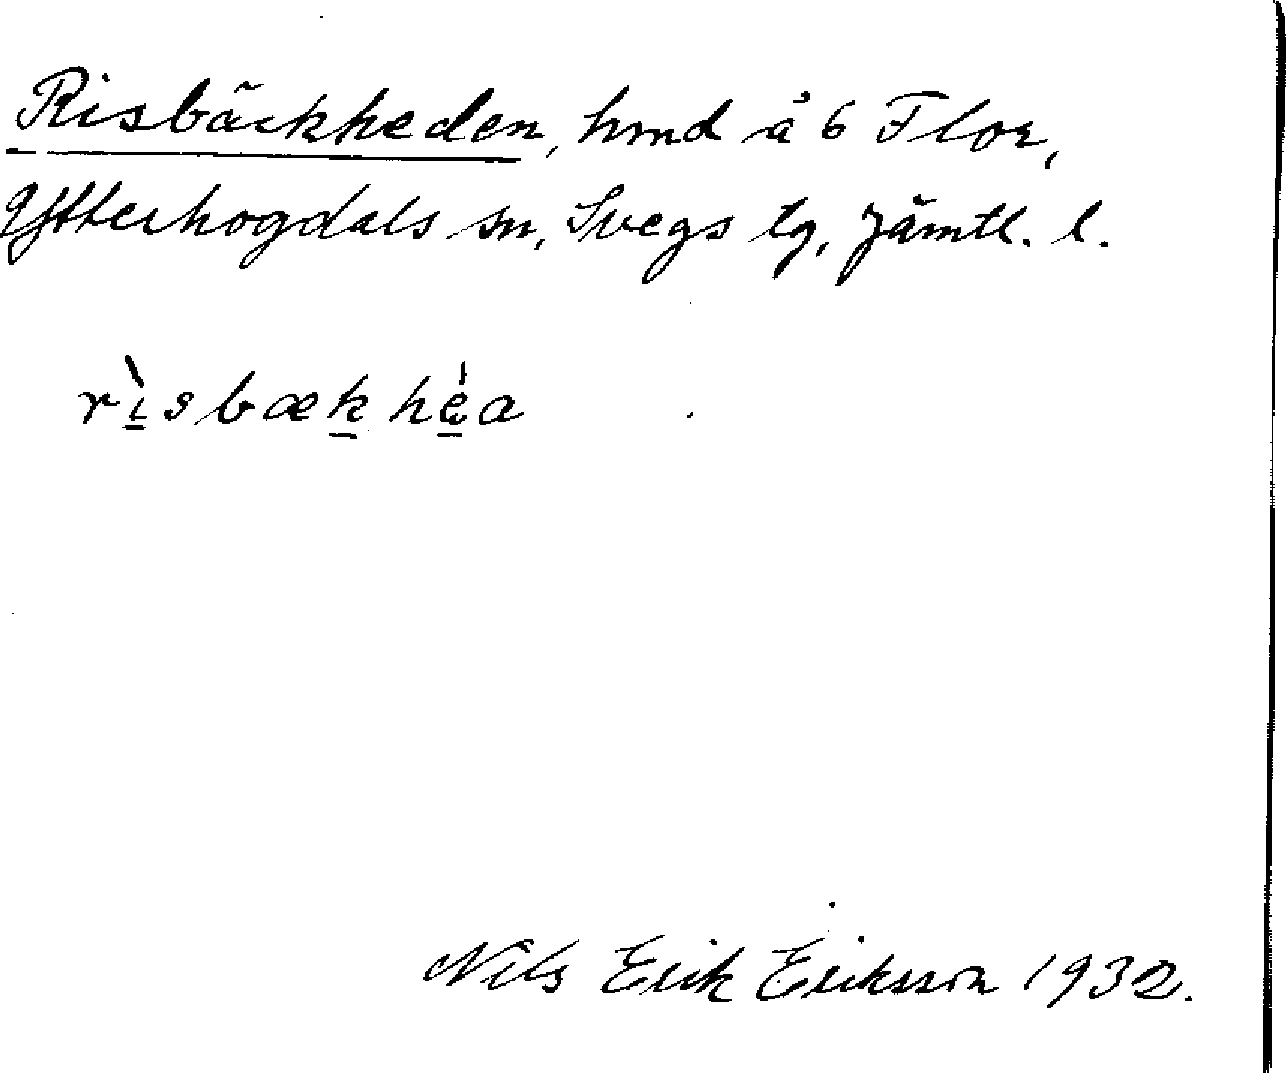 Risbäckheden, hmd å 6 Flor,
Ytterhogdals sn, Svegs tg, Jämtl. l.
rı̀sbækhe̖̍a
Nils Erik Eriksson 1932.